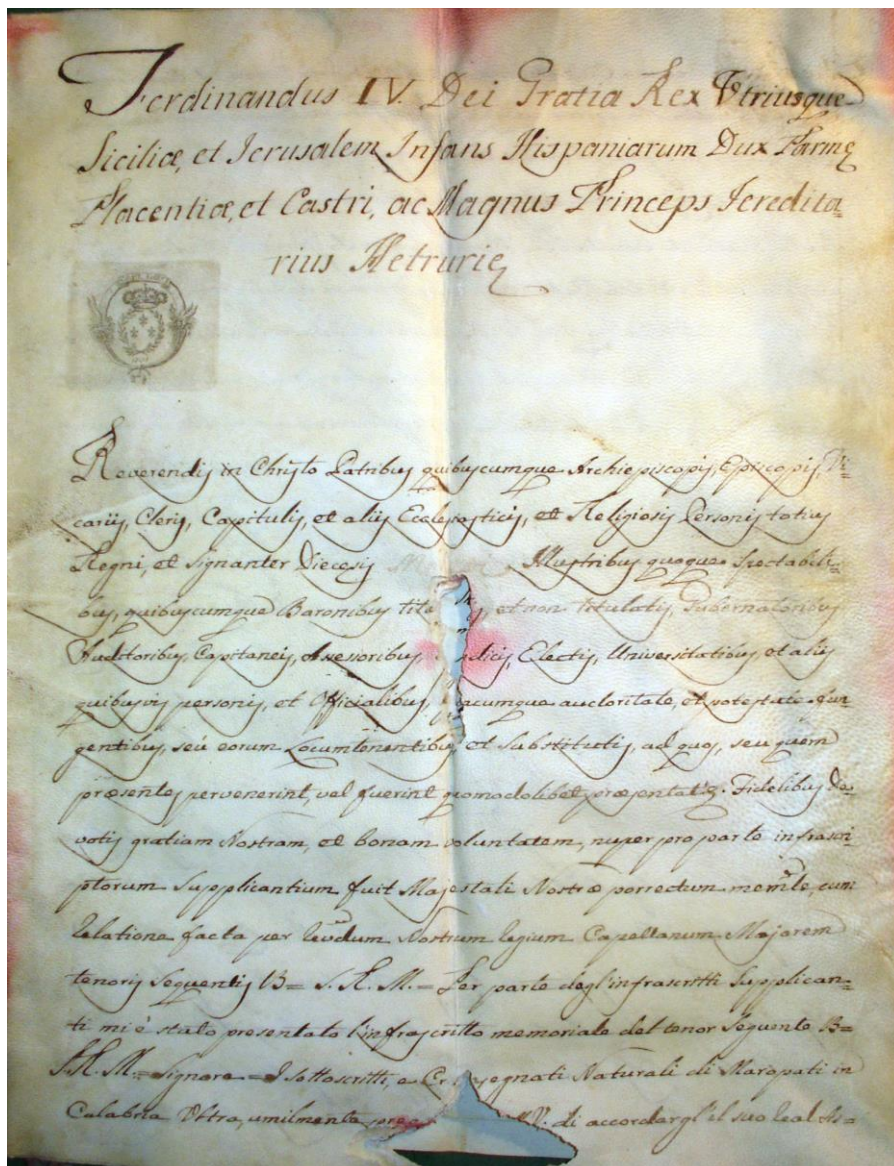 Ferdinandus IV. Dei Gratia Rex Utriusque
Siciliæ, et Jerusalem, Infans Hispaniarum Dux Parmę
Placentiæ, et Castri, ac Magnus Princeps Heredita=
rius Hetrurię
Reverendis in Christo Patribus quibuscumque Archiepiscopis, Episcopis, Vi=
cariis, Cleris, Capitulis, et aliis Ecclesiasticis, et Religiosis Personis totius
Regni, et signanter Diecesis Illustribus quoque Spectabili=
bus, quibuscumque Baronibus et non titulatis, Gubernatoribus
Auditoribus, Capitaneis, Assessoribus, Electis, Universitatibus, et aliis
quibusvis personis, et Officialibus, auctoritate, et potestate fun=
gentibus, seù eorum Locumtenentibus et Substitutis, ad quos, seu quem
præsentes pervenerint, vel fuerint quomodolibet præsentatę. Fidelibus De=
votis gratiam Nostram, et bonam voluntatem, nuper pro parte infrascri=
ptorum Supplicantium fuit Majestati Nostræ porrectum mem.le, cum
relatione facta per Revdum Nostrum Regium Capellanum Majorem
tenoris sequentis V3= S. R. M. = Per parte degl'infrascritti Supplican=
ti mi è stato presentato l'infrascritto memoriale del tenor seguente V3=
S. R. M. = Signore = I sottoscritti, e Naturali di Maropati in
Calabria Ultra, umilmente V. di accordargl'il suo Real As=